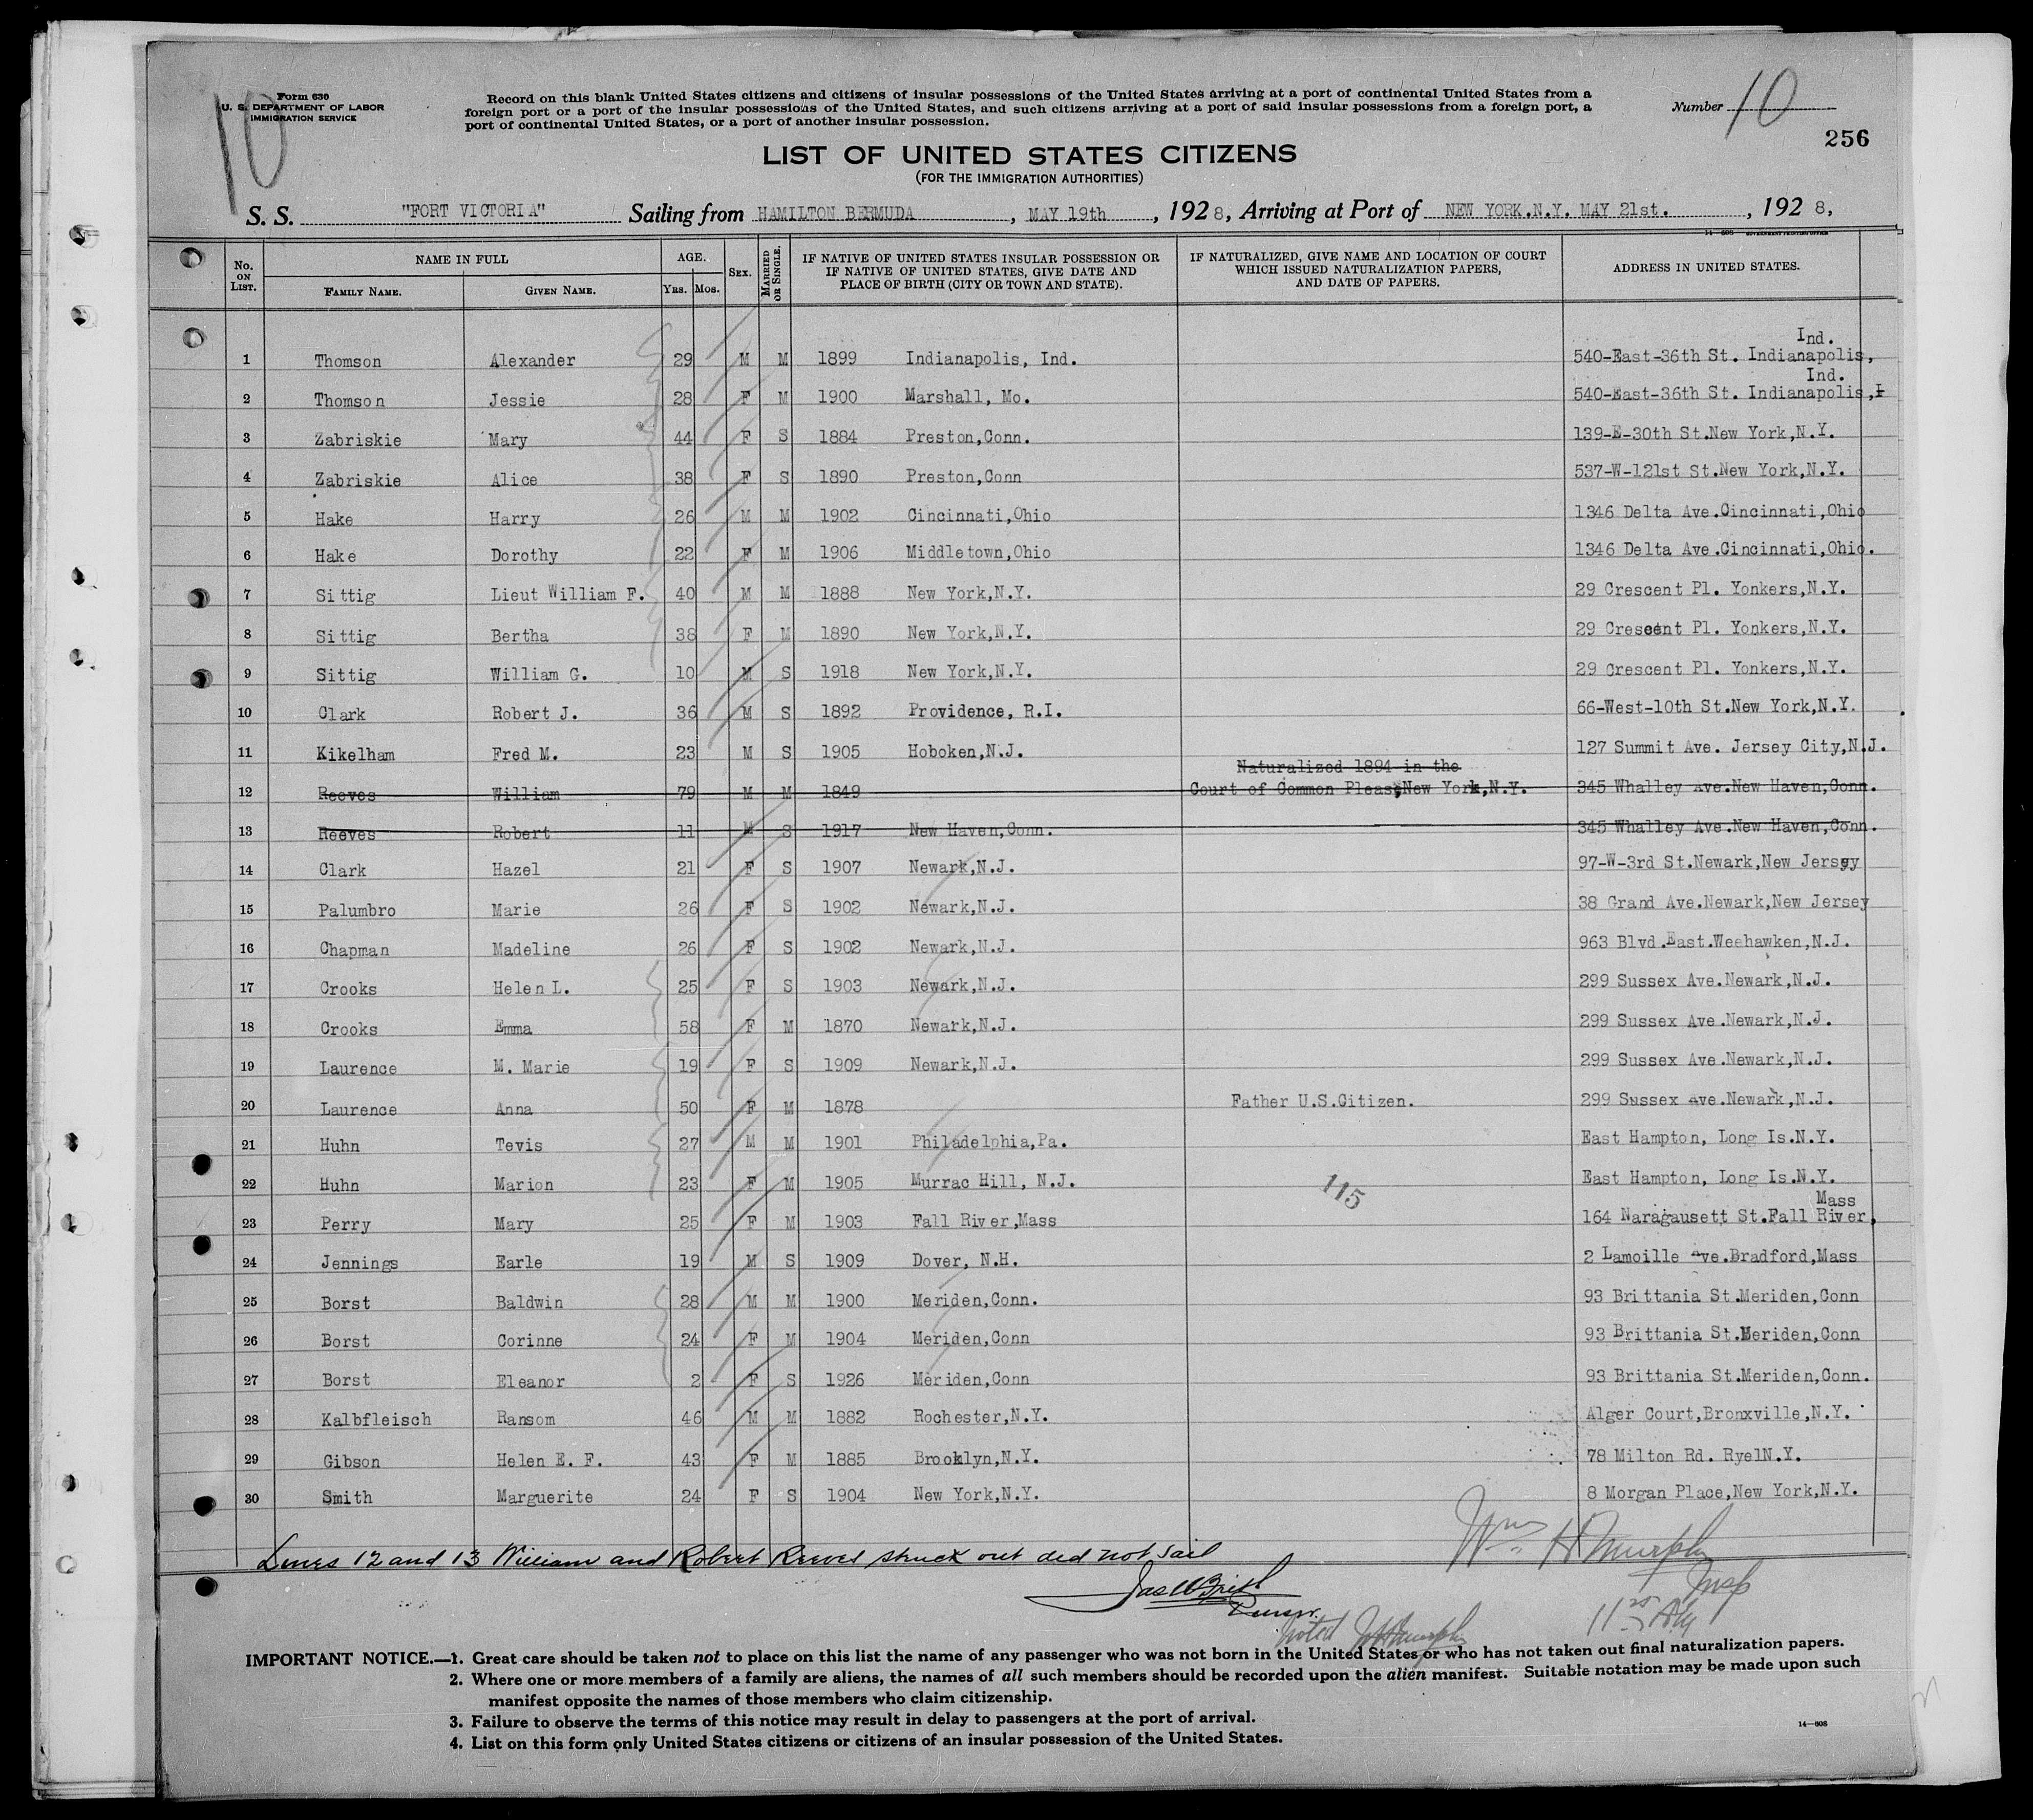 Form 630
U. S. DEPARTMENT OF LABOR
IMMIGRATION SERVICE
10
Record on this blank United States citizens and citizens of insular possessions of the United States arriving at a port of continental United States from a
foreign port or a port of the insular possessions of the United States, and such citizens arriving at a port of said insular possessions from a foreign port, a
port of continental United States, or a port of another insular possession.
Number 10
256
LIST OF UNITED STATES CITIZENS
(FOR THE IMMIGRATION AUTHORITIES)
S. S. "FORT VICTORIA" Sailing from HAMILTON BERMUDA, MAY 19th, 1928, Arriving at Port of NEW YORK.N.Y. MAY 21st., 1928,
14-608 GOVERNMENT PRINTING OFFICE
No. ON LIST. NAME IN FULL FAMILY NAME. GIVEN NAME. AGE. YRS. MOS. SEX. MARRIED OR SINGLE. IF NATIVE OF UNITED STATES INSULAR POSSESSION OR IF NATIVE OF UNITED STATES, GIVE DATE AND PLACE OF BIRTH (CITY OR TOWN AND STATE). IF NATURALIZED, GIVE NAME AND LOCATION OF COURT WHICH ISSUED NATURALIZATION PAPERS, AND DATE OF PAPERS. ADDRESS IN UNITED STATES.
Ind.
1 Thomson Alexander 29 M M 1899 Indianapolis, Ind. 540-East-36th St. Indianapolis,
Ind.
2 Thomson Jessie 28 F M 1900 Marshall, Mo. 540-East-36th St. Indianapolis,I
3 Zabriskie Mary 44 F S 1884 Preston,Conn. 139-E-30th St.New York,N.Y.
4 Zabriskie Alice 38 F S 1890 Preston,Conn 537-W-121st St.New York,N.Y.
5 Hake Harry 26 M M 1902 Cincinnati,Ohio 1346 Delta Ave.Cincinnati,Ohio
6 Hake Dorothy 22 F M 1906 Middletown,Ohio 1346 Delta Ave.Cincinnati,Ohio.
7 Sittig Lieut William F. 40 M M 1888 New York,N.Y. 29 Crescent Pl. Yonkers,N.Y.
8 Sittig Bertha 38 F M 1890 New York,N.Y. 29 Crescent Pl. Yonkers,N.Y.
9 Sittig William G. 10 M S 1918 New York,N.Y. 29 Crescent Pl. Yonkers,N.Y.
10 Clark Robert J. 36 M S 1892 Providence, R.I. 66-West-10th St.New York,N.Y.
11 Kikelham Fred M. 23 M S 1905 Hoboken,N.J. 127 Summit Ave. Jersey City,N.J.
Naturalized 1894 in the
12 Reeves William 79 M M 1849 Court of Common Pleas,New York,N.Y. 345 Whalley Ave.New Haven,Conn.
13 Reeves Robert 11 M S 1917 New Haven,Conn. 345 Whalley Ave.New Haven,Conn.
14 Clark Hazel 21 F S 1907 Newark,N.J. 97-W-3rd St.Newark,New Jersey
15 Palumbro Marie 26 F S 1902 Newark,N.J. 38 Grand Ave.Newark,New Jersey
16 Chapman Madeline 26 F S 1902 Newark,N.J. 963 Blvd.East.Weehawken,N.J.
17 Crooks Helen L. 25 F S 1903 Newark,N.J. 299 Sussex Ave.Newark,N.J.
18 Crooks Emma 58 F M 1870 Newark,N.J. 299 Sussex Ave.Newark,N.J.
19 Laurence M. Marie 19 F S 1909 Newark,N.J. 299 Sussex Ave.Newark,N.J.
20 Laurence Anna 50 F M 1878 Father U.S.Citizen. 299 Sussex Ave.Newark,N.J.
21 Huhn Tevis 27 M M 1901 Philadelphia,Pa. East Hampton, Long Is.N.Y.
22 Huhn Marion 23 F M 1905 Murrac Hill, N.J. 115 East Hampton, Long Is.N.Y.
Mass
23 Perry Mary 25 F M 1903 Fall River,Mass 164 Naragausett St.Fall River,
24 Jennings Earle 19 M S 1909 Dover, N.H. 2 Lamoille Ave.Bradford,Mass
25 Borst Baldwin 28 M M 1900 Meriden,Conn. 93 Brittania St.Meriden,Conn
26 Borst Corinne 24 F M 1904 Meriden,Conn 93 Brittania St.Meriden,Conn
27 Borst Eleanor 2 F S 1926 Meriden,Conn 93 Brittania St.Meriden,Conn.
28 Kalbfleisch Ransom 46 M M 1882 Rochester,N.Y. Alger Court,Bronxville,N.Y.
29 Gibson Helen E. F. 43 F M 1885 Brooklyn,N.Y. 78 Milton Rd. RyelN.Y.
30 Smith Marguerite 24 F S 1904 New York,N.Y. 8 Morgan Place,New York,N.Y.
Lines 12 and 13 William and Robert Reeves struck out did not sail
Wm H Murphy
Insp
Purser.
noted
IMPORTANT NOTICE.—1. Great care should be taken not to place on this list the name of any passenger who was not born in the United States or who has not taken out final naturalization papers.
2. Where one or more members of a family are aliens, the names of all such members should be recorded upon the alien manifest. Suitable notation may be made upon such
manifest opposite the names of those members who claim citizenship.
3. Failure to observe the terms of this notice may result in delay to passengers at the port of arrival.
4. List on this form only United States citizens or citizens of an insular possession of the United States.
14-608